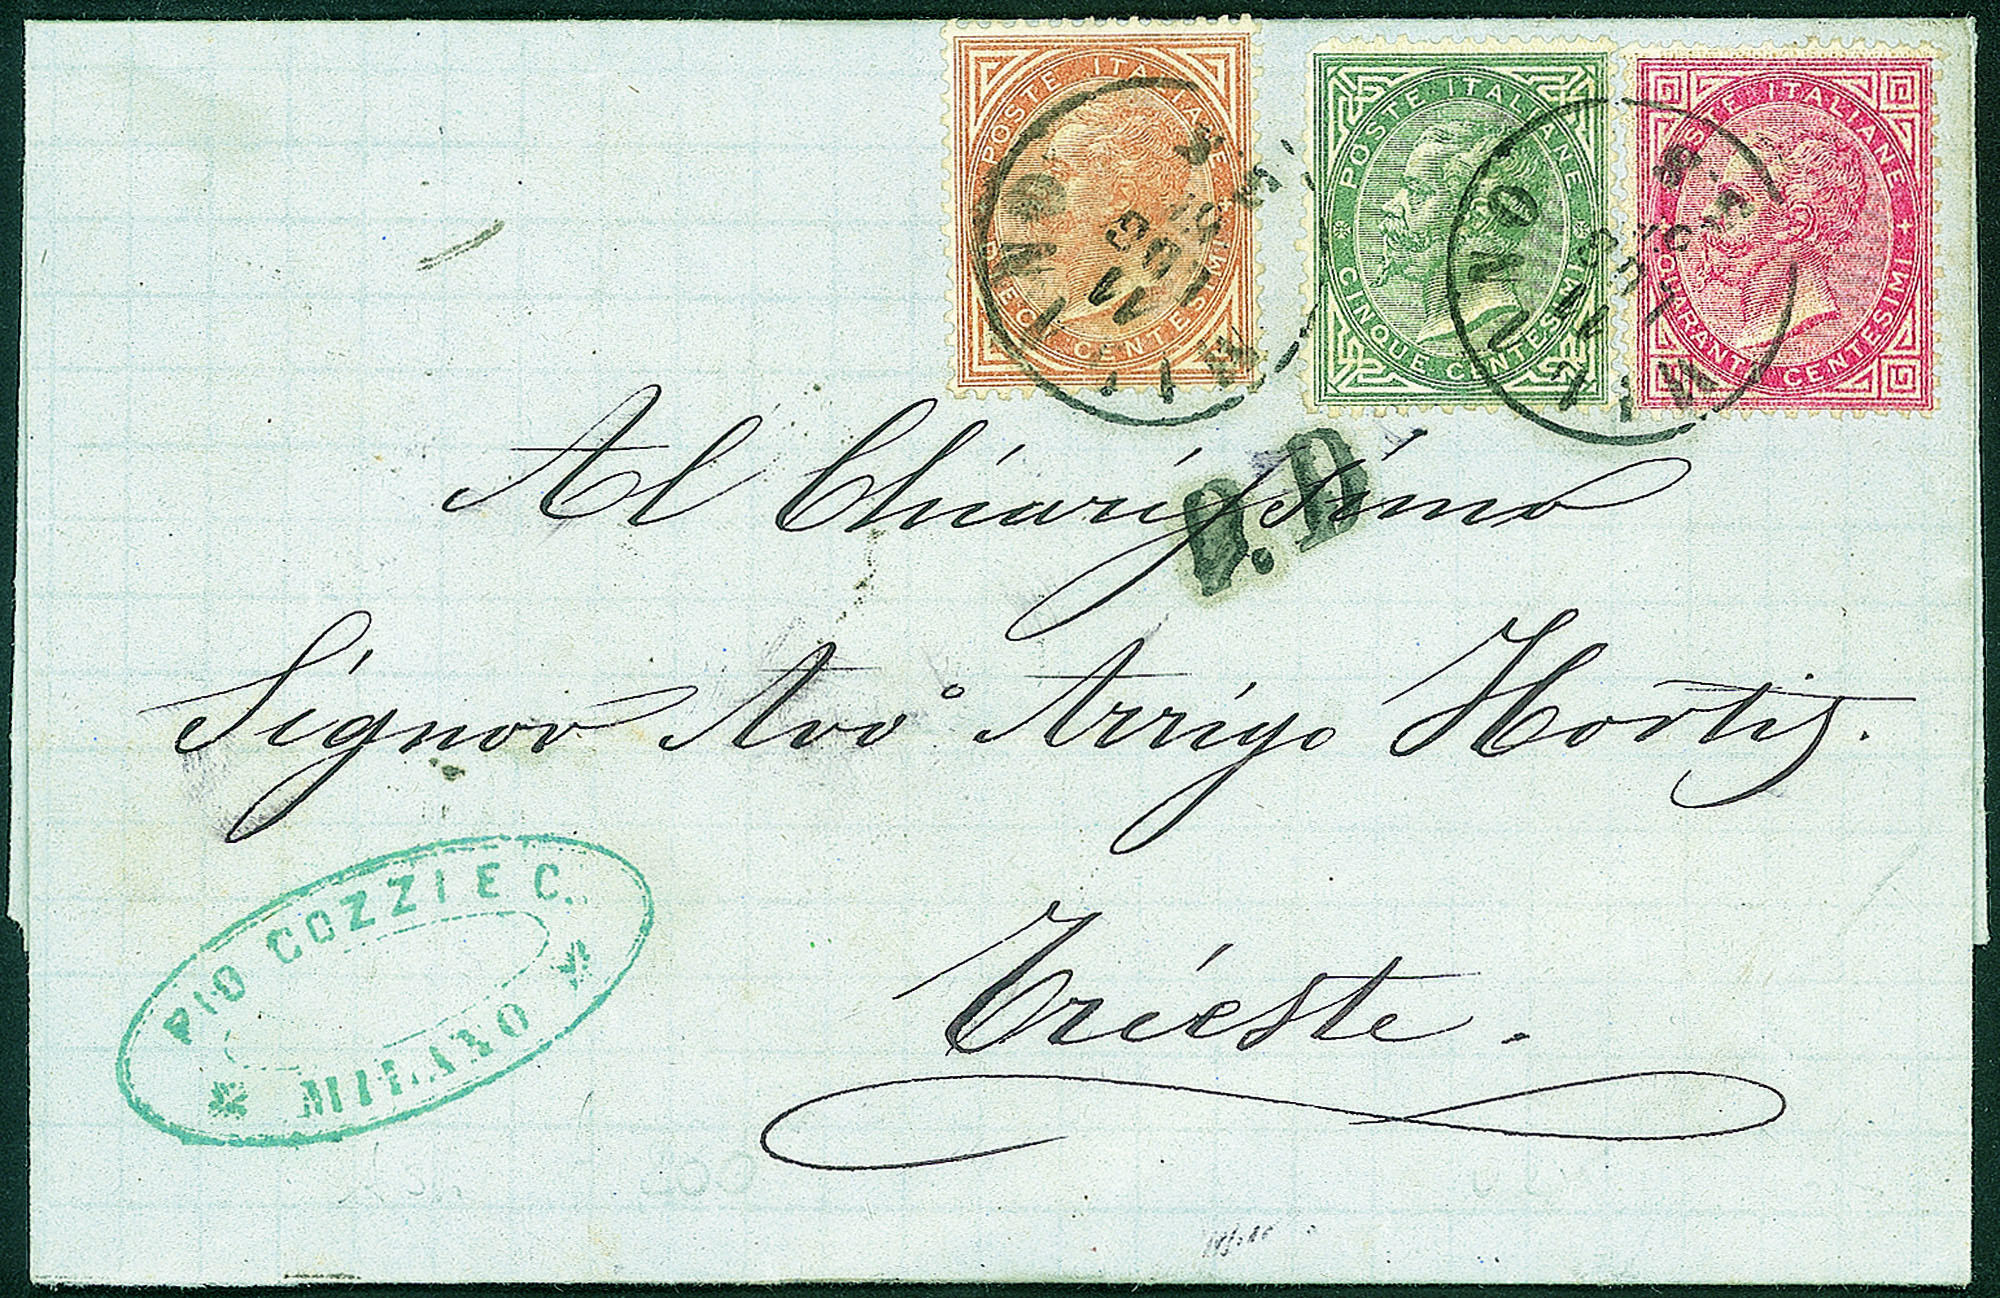 POSTE ITALIANE
DIECI CENTESIMI
POSTE ITALIANE
CINQUE CENTESIMI
POSTE ITALIANE
QUARANTA CENTESIMI
MILANO
MILANO
P.D.
Al Chiarissimo
Signor Avv° Arrigo Hortis.
Trieste.
PIO COZZI E C.
MILANO